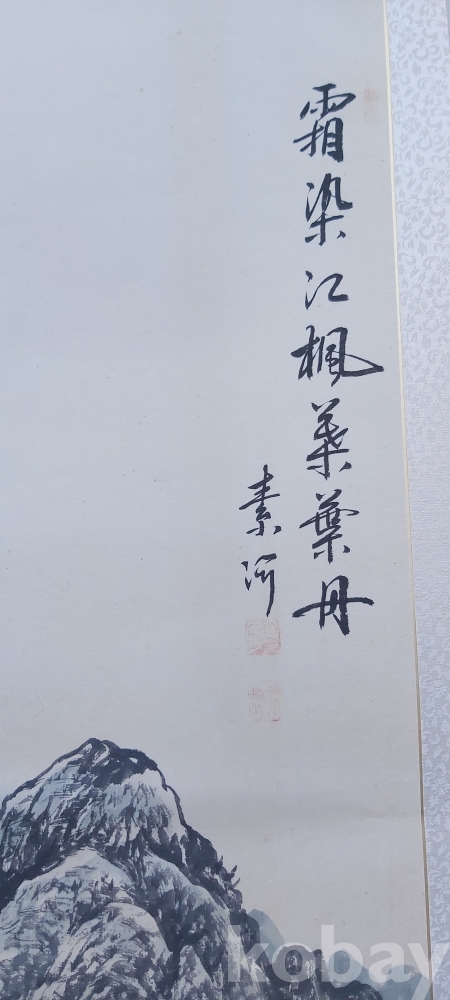 霜染江楓葉葉丹
素河
kobay